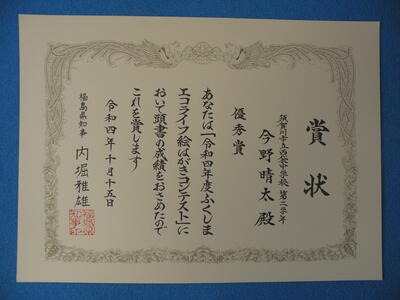 賞状
須賀川市立西袋中学校 第二学年
今野晴太 殿
優秀賞
あなたは「令和四年度ふくしま
エコライフ絵はがきコンテスト」に
おいて頭書の成績をおさめたので
これを賞します
令和四年十月十五日
福島県知事 内堀雅雄